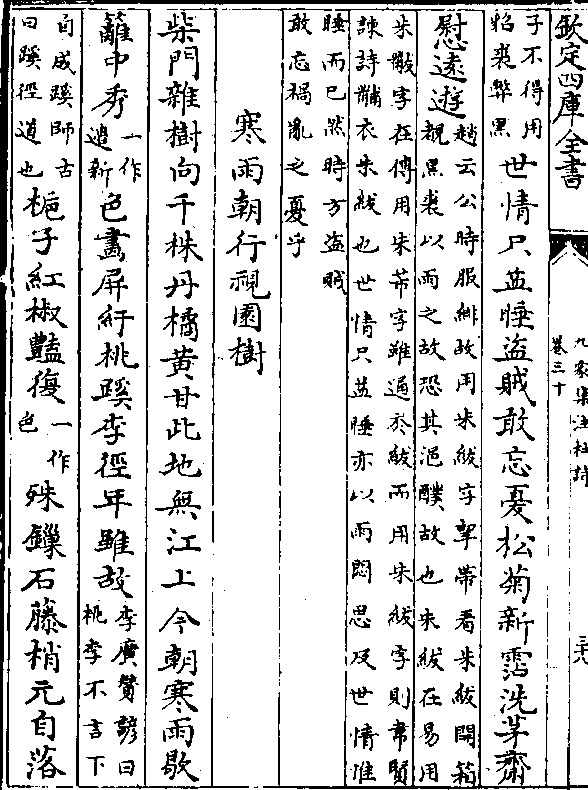 欽定四庫全書
九家集注杜詩
卷三十
子不得用
貂裘弊黒
世情只益睡盜賊敢忘憂松菊新霑洗茅齋
慰逺遊
趙云公時服緋故用朱紱字挈帶看朱紱開箱
覩黒裘以雨之故恐其浥醭故也朱紱在易用
朱黻字在傳用朱芾字雖通於紱而用朱紱字則韋賢
諫詩黼衣朱紱也世情只益睡亦以雨悶思及世情惟
睡而已然時方盜賊
敢忘禍亂之憂乎
寒雨朝行視園樹
柴門雜樹向千株丹橘黄甘此地無江上今朝寒雨歇
籬中秀
一作
邉新
色畫屏紆桃蹊李徑年雖故
李廣贊諺曰
桃李不言下
自成蹊師古
曰蹊徑道也
梔子紅椒豔復
一作
色
殊鏁石藤梢元自落